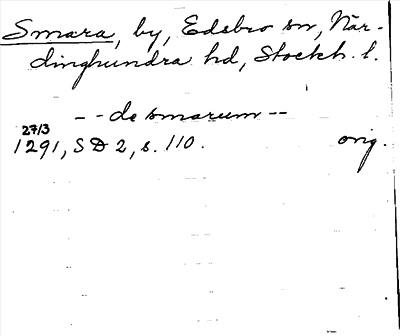 Smara, by, Edsbro sn, När-
dinghundra hd, Stockh. l.
-- de smarum --
27/3
1291, SD 2, s. 110. orig.